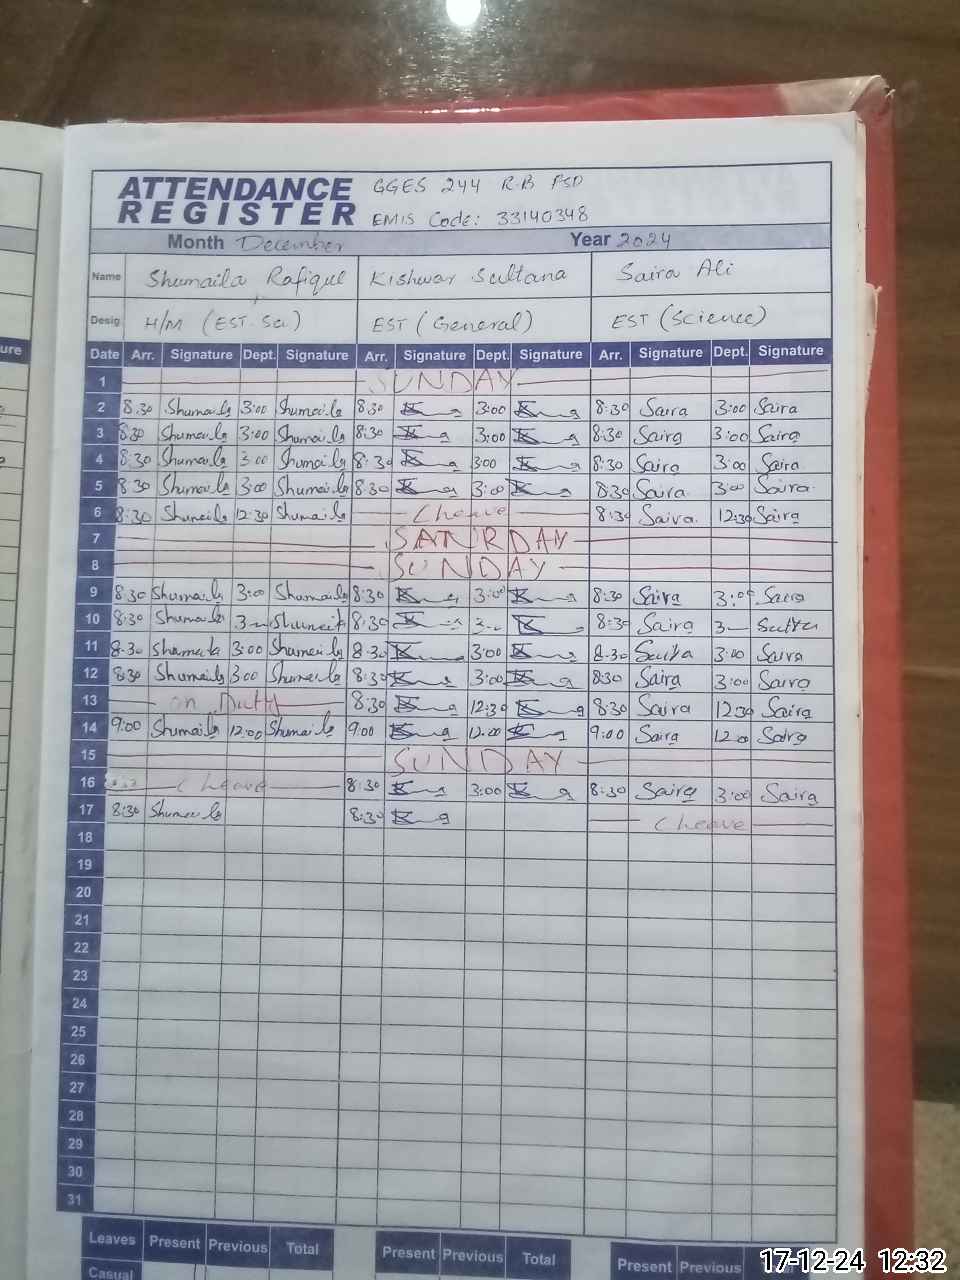 ATTENDANCE REGISTER
GGES 244 R.B FSD
EMIS Code: 33140348
Month December Year 2024
Name Shumaila Rafique Kishwar Sultana Saira Ali
Desig. H/M (EST. Sci) EST (General) EST (Science)
Date Arr. Signature Dept. Signature Arr. Signature Dept. Signature Arr. Signature Dept. Signature
1 SUNDAY
2 8:30 Shumaila 3:00 Shumaila 8:30 3:00 8:30 Saira 3:00 Saira
3 8:30 Shumaila 3:00 Shumaila 8:30 3:00 8:30 Saira 3:00 Saira
4 8:30 Shumaila 3:00 Shumaila 8:30 3:00 8:30 Saira 3:00 Saira
5 8:30 Shumaila 3:00 Shumaila 8:30 3:00 8:30 Saira 3:00 Saira
6 8:30 Shumaila 12:30 Shumaila C leave 8:30 Saira 12:30 Saira
7 SATURDAY
8 SUNDAY
9 8:30 Shumaila 3:00 Shumaila 8:30 3:00 8:30 Saira 3:00 Saira
10 8:30 Shumaila 3 Shumaila 8:30 3 8:30 Saira 3 Saira
11 8:30 Shumaila 3:00 Shumaila 8:30 3:00 8:30 Saira 3:00 Saira
12 8:30 Shumaila 3:00 Shumaila 8:30 3:00 8:30 Saira 3:00 Saira
13 on Duty 8:30 12:30 8:30 Saira 12:30 Saira
14 9:00 Shumaila 12:00 Shumaila 9:00 12:00 9:00 Saira 12:00 Saira
15 SUNDAY
16 C leave 8:30 3:00 8:30 Saira 3:00 Saira
17 8:30 Shumaila 8:30 C leave
18
19
20
21
22
23
24
25
26
27
28
29
30
31
Leaves Present Previous Total Present Previous Total Present Previous
Casual
17-12-24 12:32